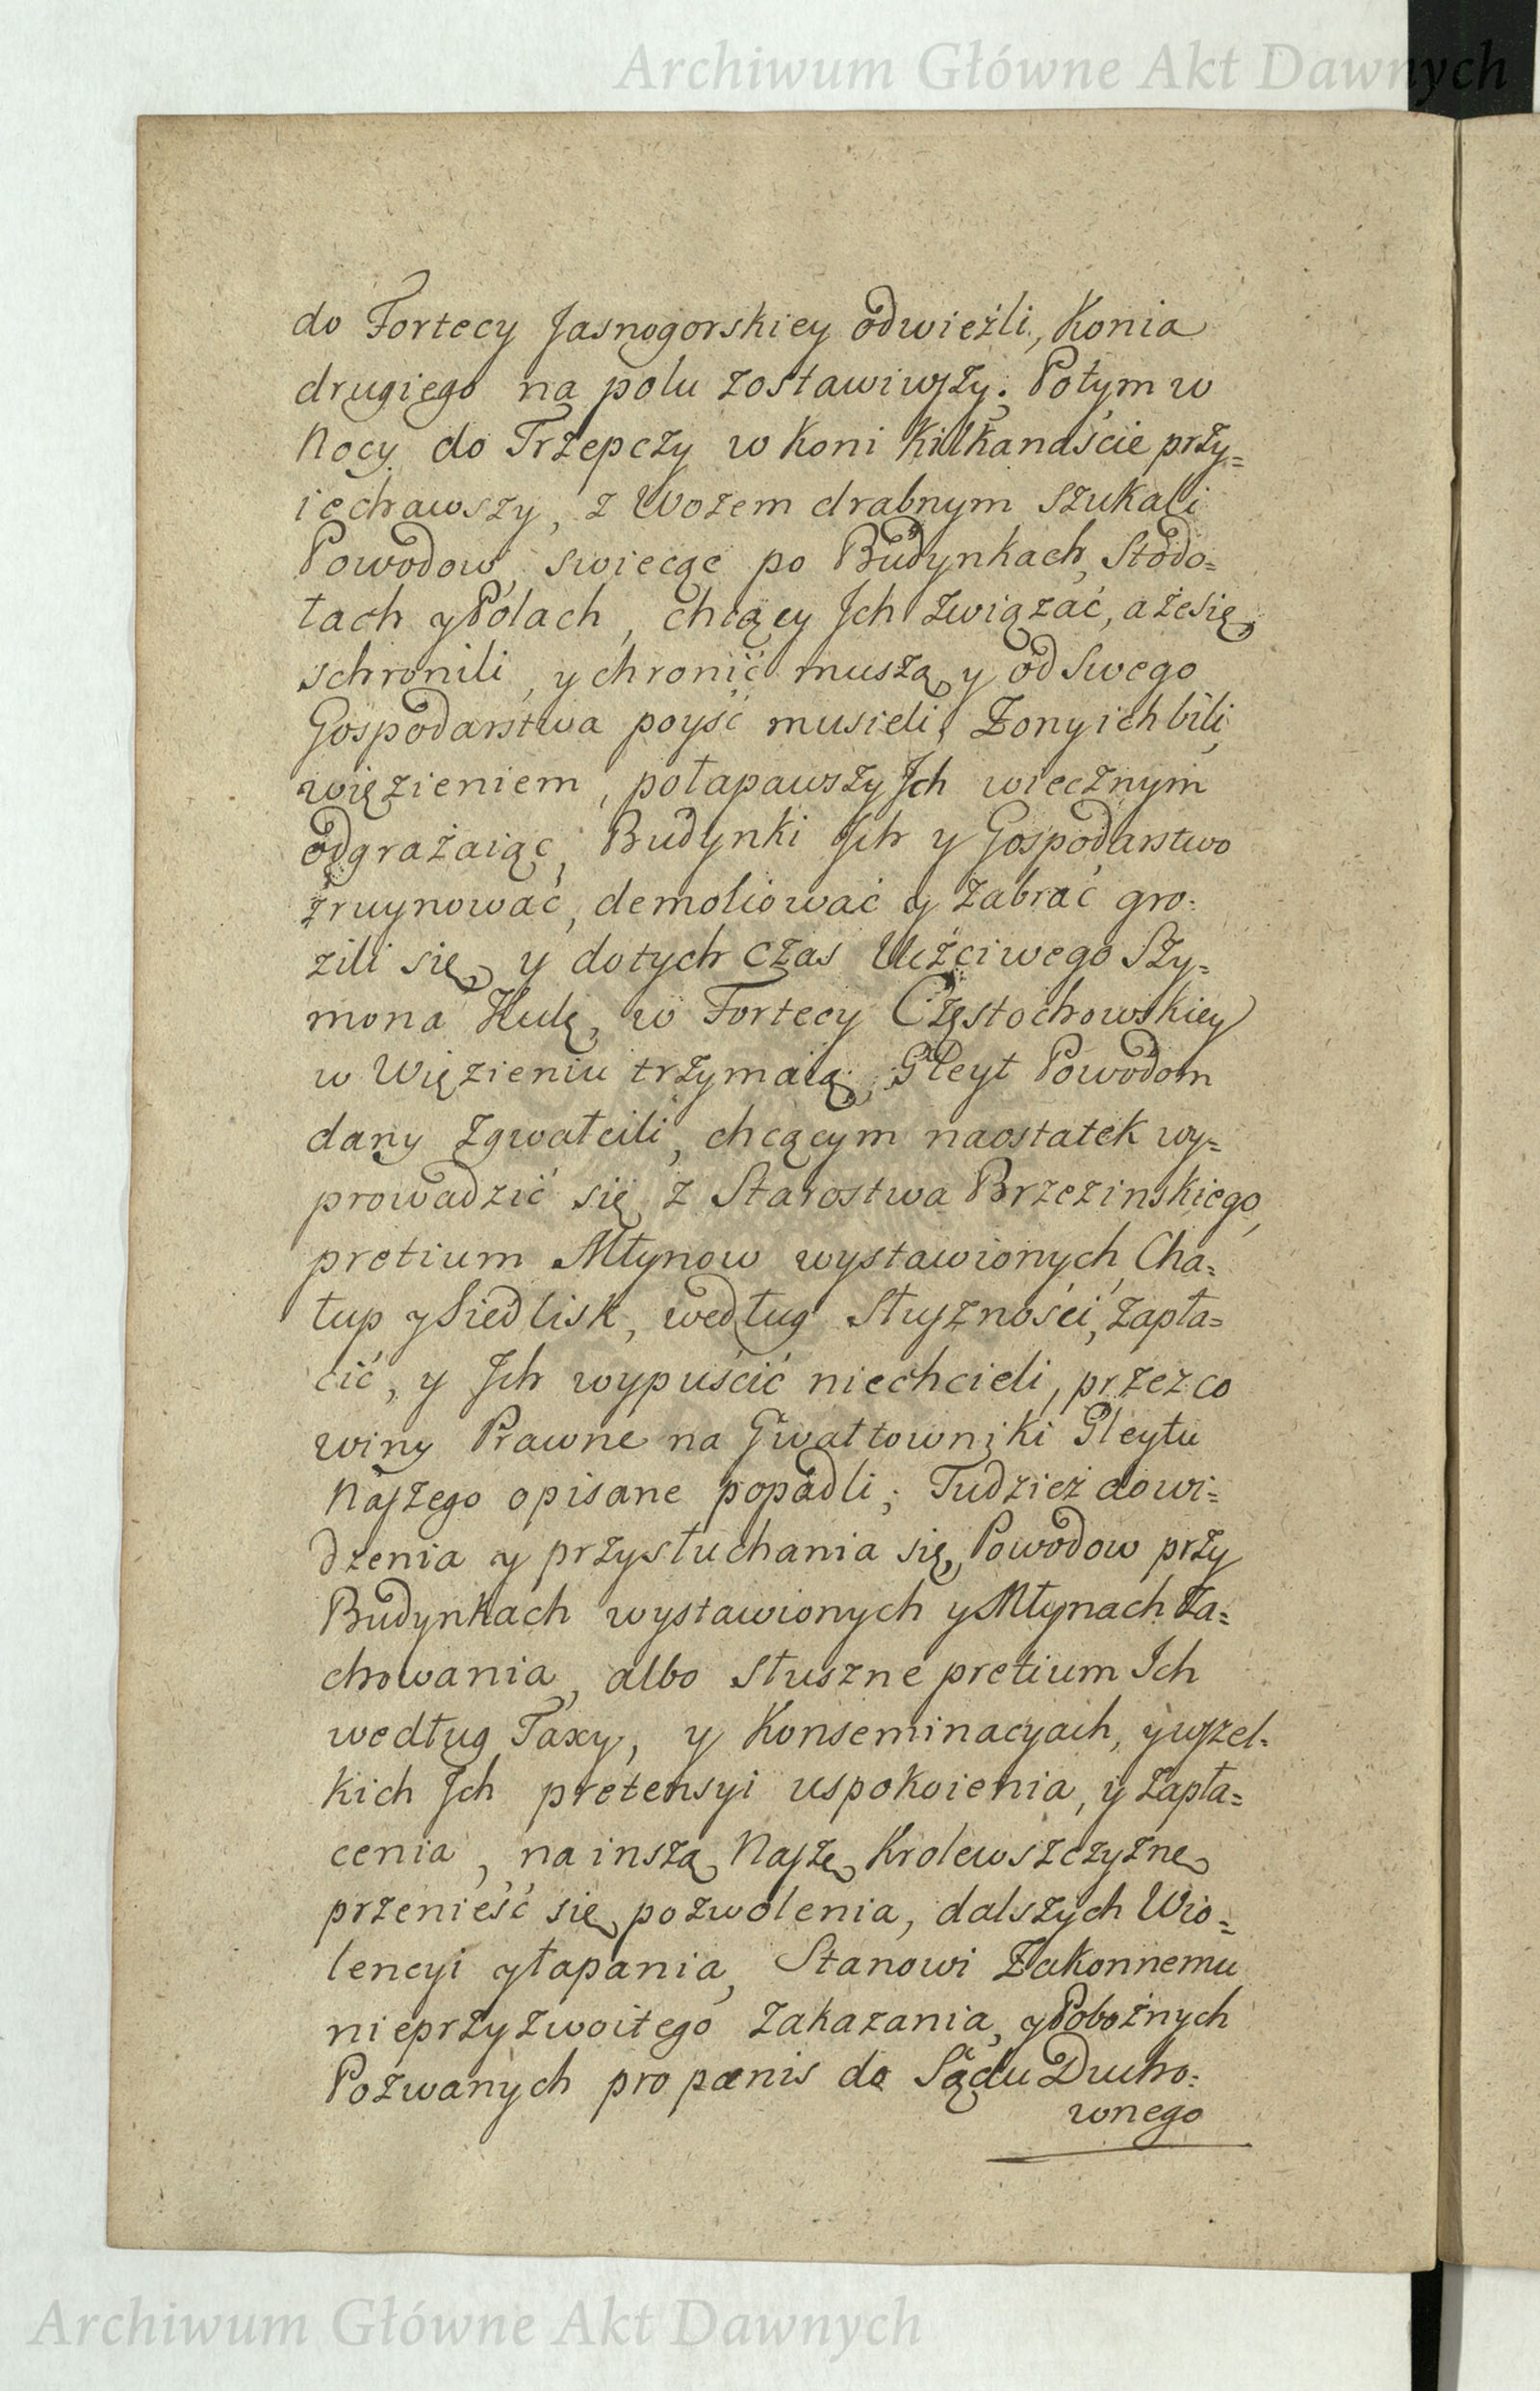 Archiwum Główne Akt Dawnych
do Fortecy Jasnogorskiey odwieźli, Konia
drugiego na polu zostawiwszy. Potym w
Nocy do Trzepczy w Koni Kilkanaście przy=
iechawszy, z Wozem drabnym szukali
Powodow, swiecąc po Budynkach, Stodo=
łach y Polach, chcący Jch związać, a że się
schronili, y chronić muszą, y od Swego
Gospodarstwa poyść musieli, Żony ich bili,
więzieniem, połapawszy Jch wiecznym
odgrażaiąc, Budynki Jch y Gospodarstwo
zruynować, demoliować y zabrać gro=
zili się, y dotych czas Uczciwego Szy=
mona Hulę, w Fortecy Częstochowskiey
w Więzieniu trzymaią; Gleyt Powodom
dany zgwałcili, chcącym naostatek wy=
prowadzić się z Starostwa Brzezinskiego,
pretium Młynow wystawionych, Cha=
łup y Siedlisk, według Słuszności, zapła=
cić, y Jch wypuścić niechcieli, przez co
winy Prawne na Gwałtowniki Gleytu
Naszego opisane popadli; Tudzież dowi=
dzenia y przysłuchania się, Powodow przy
Budynkach wystawionych y Młynach Za=
chowania, albo Słuszne pretium Ich
według Taxy, y Konseminacyach, y wszel=
kich Jch pretensyi uspokoienia, y zapła=
cenia, na inszą Naszę Krolewszczyznę
przenieść się pozwolenia, dalszych Wio=
lencyi y łapania, Stanowi Zakonnemu
nieprzyzwoitego zakazania, y Pobożnych
Pozwanych pro pænis do Sądu Ducho=
wnego
Archiwum Główne Akt Dawnych